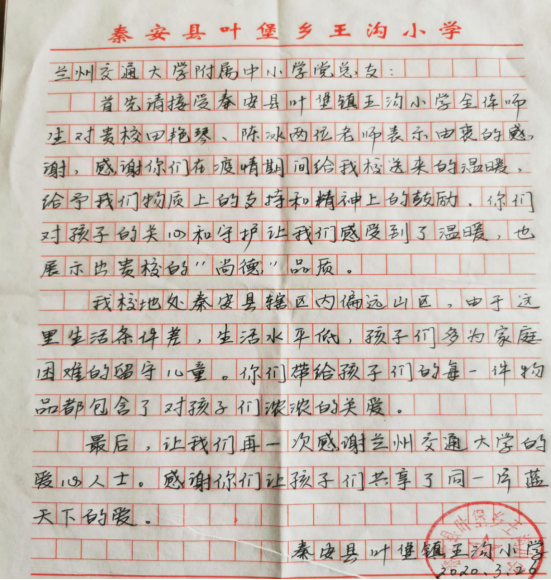 秦安县叶堡乡王沟小学
兰州交通大学附属中小学党总支：
首先请接受秦安县叶堡镇王沟小学全体师
生对贵校田艳琴、陈冰两位老师表示由衷的感
谢，感谢你们在疫情期间给我校送来的温暖，
给予我们物质上的支持和精神上的鼓励．你们
对孩子的关心和守护让我们感受到了温暖，也
展示出贵校的“尚德”品质。
我校地处秦安县辖区内偏远山区，由于这
里生活条件差，生活水平低，孩子们多为家庭
困难的留守儿童。你们带给孩子们的每一件物
品都包含了对孩子们浓浓的关爱。
最后，让我们再一次感谢兰州交通大学的
爱心人士。感谢你们让孩子们共享了同一片蓝
天下的爱。
秦安县叶堡镇王沟小学
2020.3.26